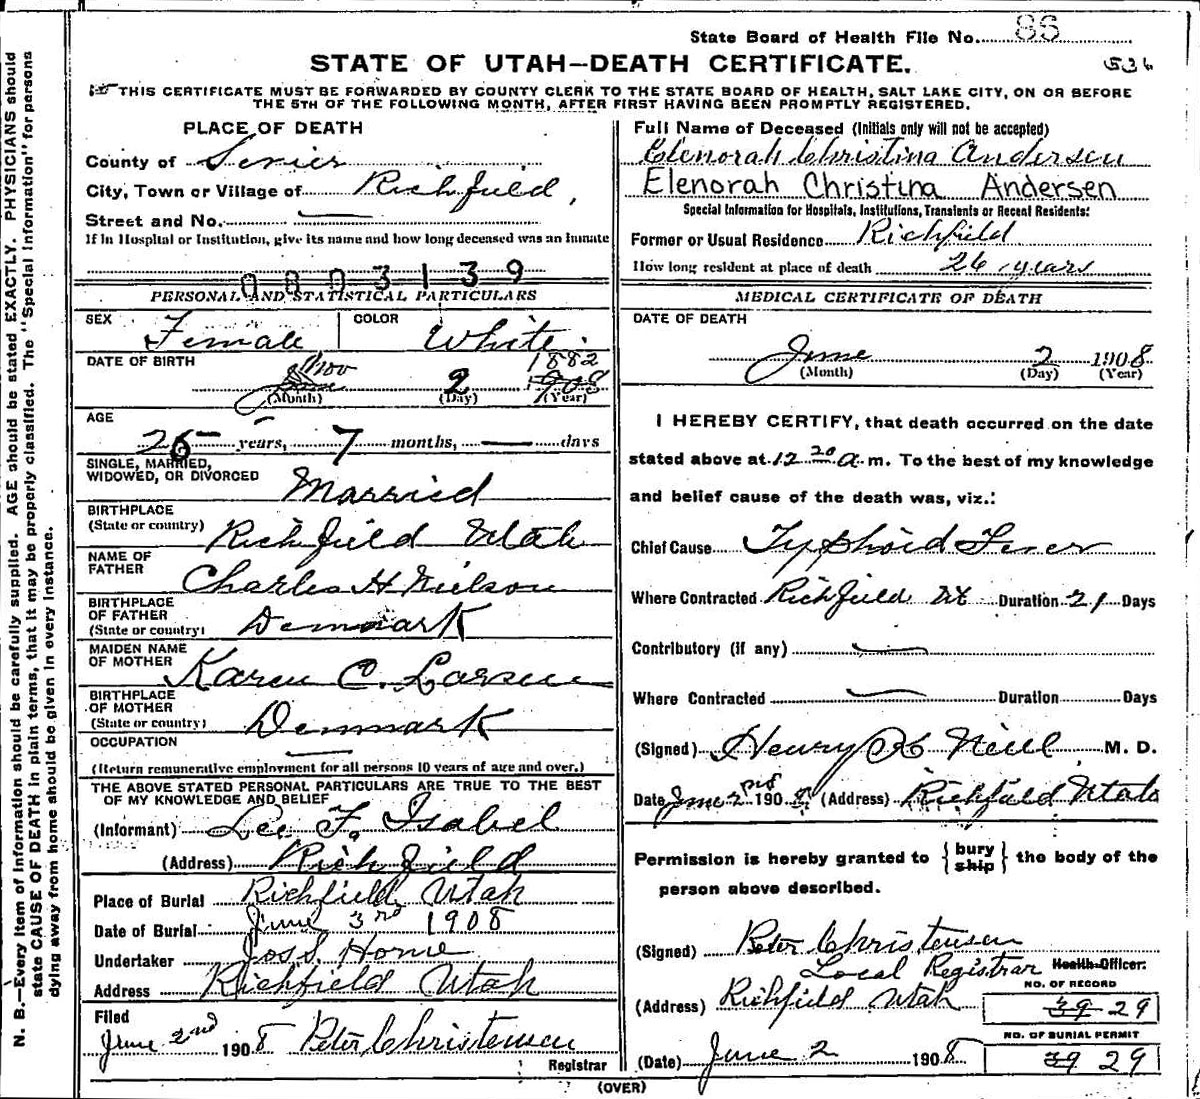 State Board of Health File No. 86
STATE OF UTAH—DEATH CERTIFICATE.
536
THIS CERTIFICATE MUST BE FORWARDED BY COUNTY CLERK TO THE STATE BOARD OF HEALTH, SALT LAKE CITY, ON OR BEFORE
THE 5TH OF THE FOLLOWING MONTH, AFTER FIRST HAVING BEEN PROMPTLY REGISTERED.
N. B.—Every item of information should be carefully supplied. AGE should be stated EXACTLY. PHYSICIANS should
state CAUSE OF DEATH in plain terms, that it may be properly classified. The "Special Information" for persons
dying away from home should be given in every instance.
PLACE OF DEATH
County of Sevier
City, Town or Village of Richfield,
Street and No. —
If in Hospital or Institution, give its name and how long deceased was an inmate
0803139
PERSONAL AND STATISTICAL PARTICULARS
SEX Female COLOR White
DATE OF BIRTH Nov 2 1882
June 1908
(Month) (Day) (Year)
AGE
25 years, 7 months, — days
SINGLE, MARRIED,
WIDOWED, OR DIVORCED Married
BIRTHPLACE
(State or country) Richfield Utah
NAME OF
FATHER Charles H Nielson
BIRTHPLACE
OF FATHER
(State or country) Denmark
MAIDEN NAME
OF MOTHER Karen C. Larsen
BIRTHPLACE
OF MOTHER
(State or country) Denmark
OCCUPATION —
(Return remunerative employment for all persons 10 years of age and over.)
THE ABOVE STATED PERSONAL PARTICULARS ARE TRUE TO THE BEST
OF MY KNOWLEDGE AND BELIEF
(Informant) Lee F. Isabel
(Address) Richfield
Place of Burial Richfield, Utah
Date of Burial June 3rd 1908
Undertaker Jos S. Horne
Address Richfield Utah
Filed
June 2nd 1908 Peter Christensen
Registrar
Full Name of Deceased (Initials only will not be accepted)
Elenorah Christina Andersen
Elenorah Christina Andersen
Special Information for Hospitals, Institutions, Transients or Recent Residents:
Former or Usual Residence Richfield
How long resident at place of death 26 years
MEDICAL CERTIFICATE OF DEATH
DATE OF DEATH
June 2 1908
(Month) (Day) (Year)
I HEREBY CERTIFY, that death occurred on the date
stated above at 12 20 a. m. To the best of my knowledge
and belief cause of the death was, viz.:
Chief Cause Typhoid Fever
Where Contracted Richfield Ut Duration 21 Days
Contributory (if any) —
Where Contracted — Duration Days
(Signed) Henry K Neill M. D.
Date June 2nd 1908, (Address) Richfield Utah
Permission is hereby granted to {bury
ship} the body of the
person above described.
(Signed) Peter Christensen
Local Registrar Health Officer.
(Address) Richfield Utah
NO. OF RECORD
39 29
NO. OF BURIAL PERMIT
39 29
(Date) June 2 1908
(OVER)